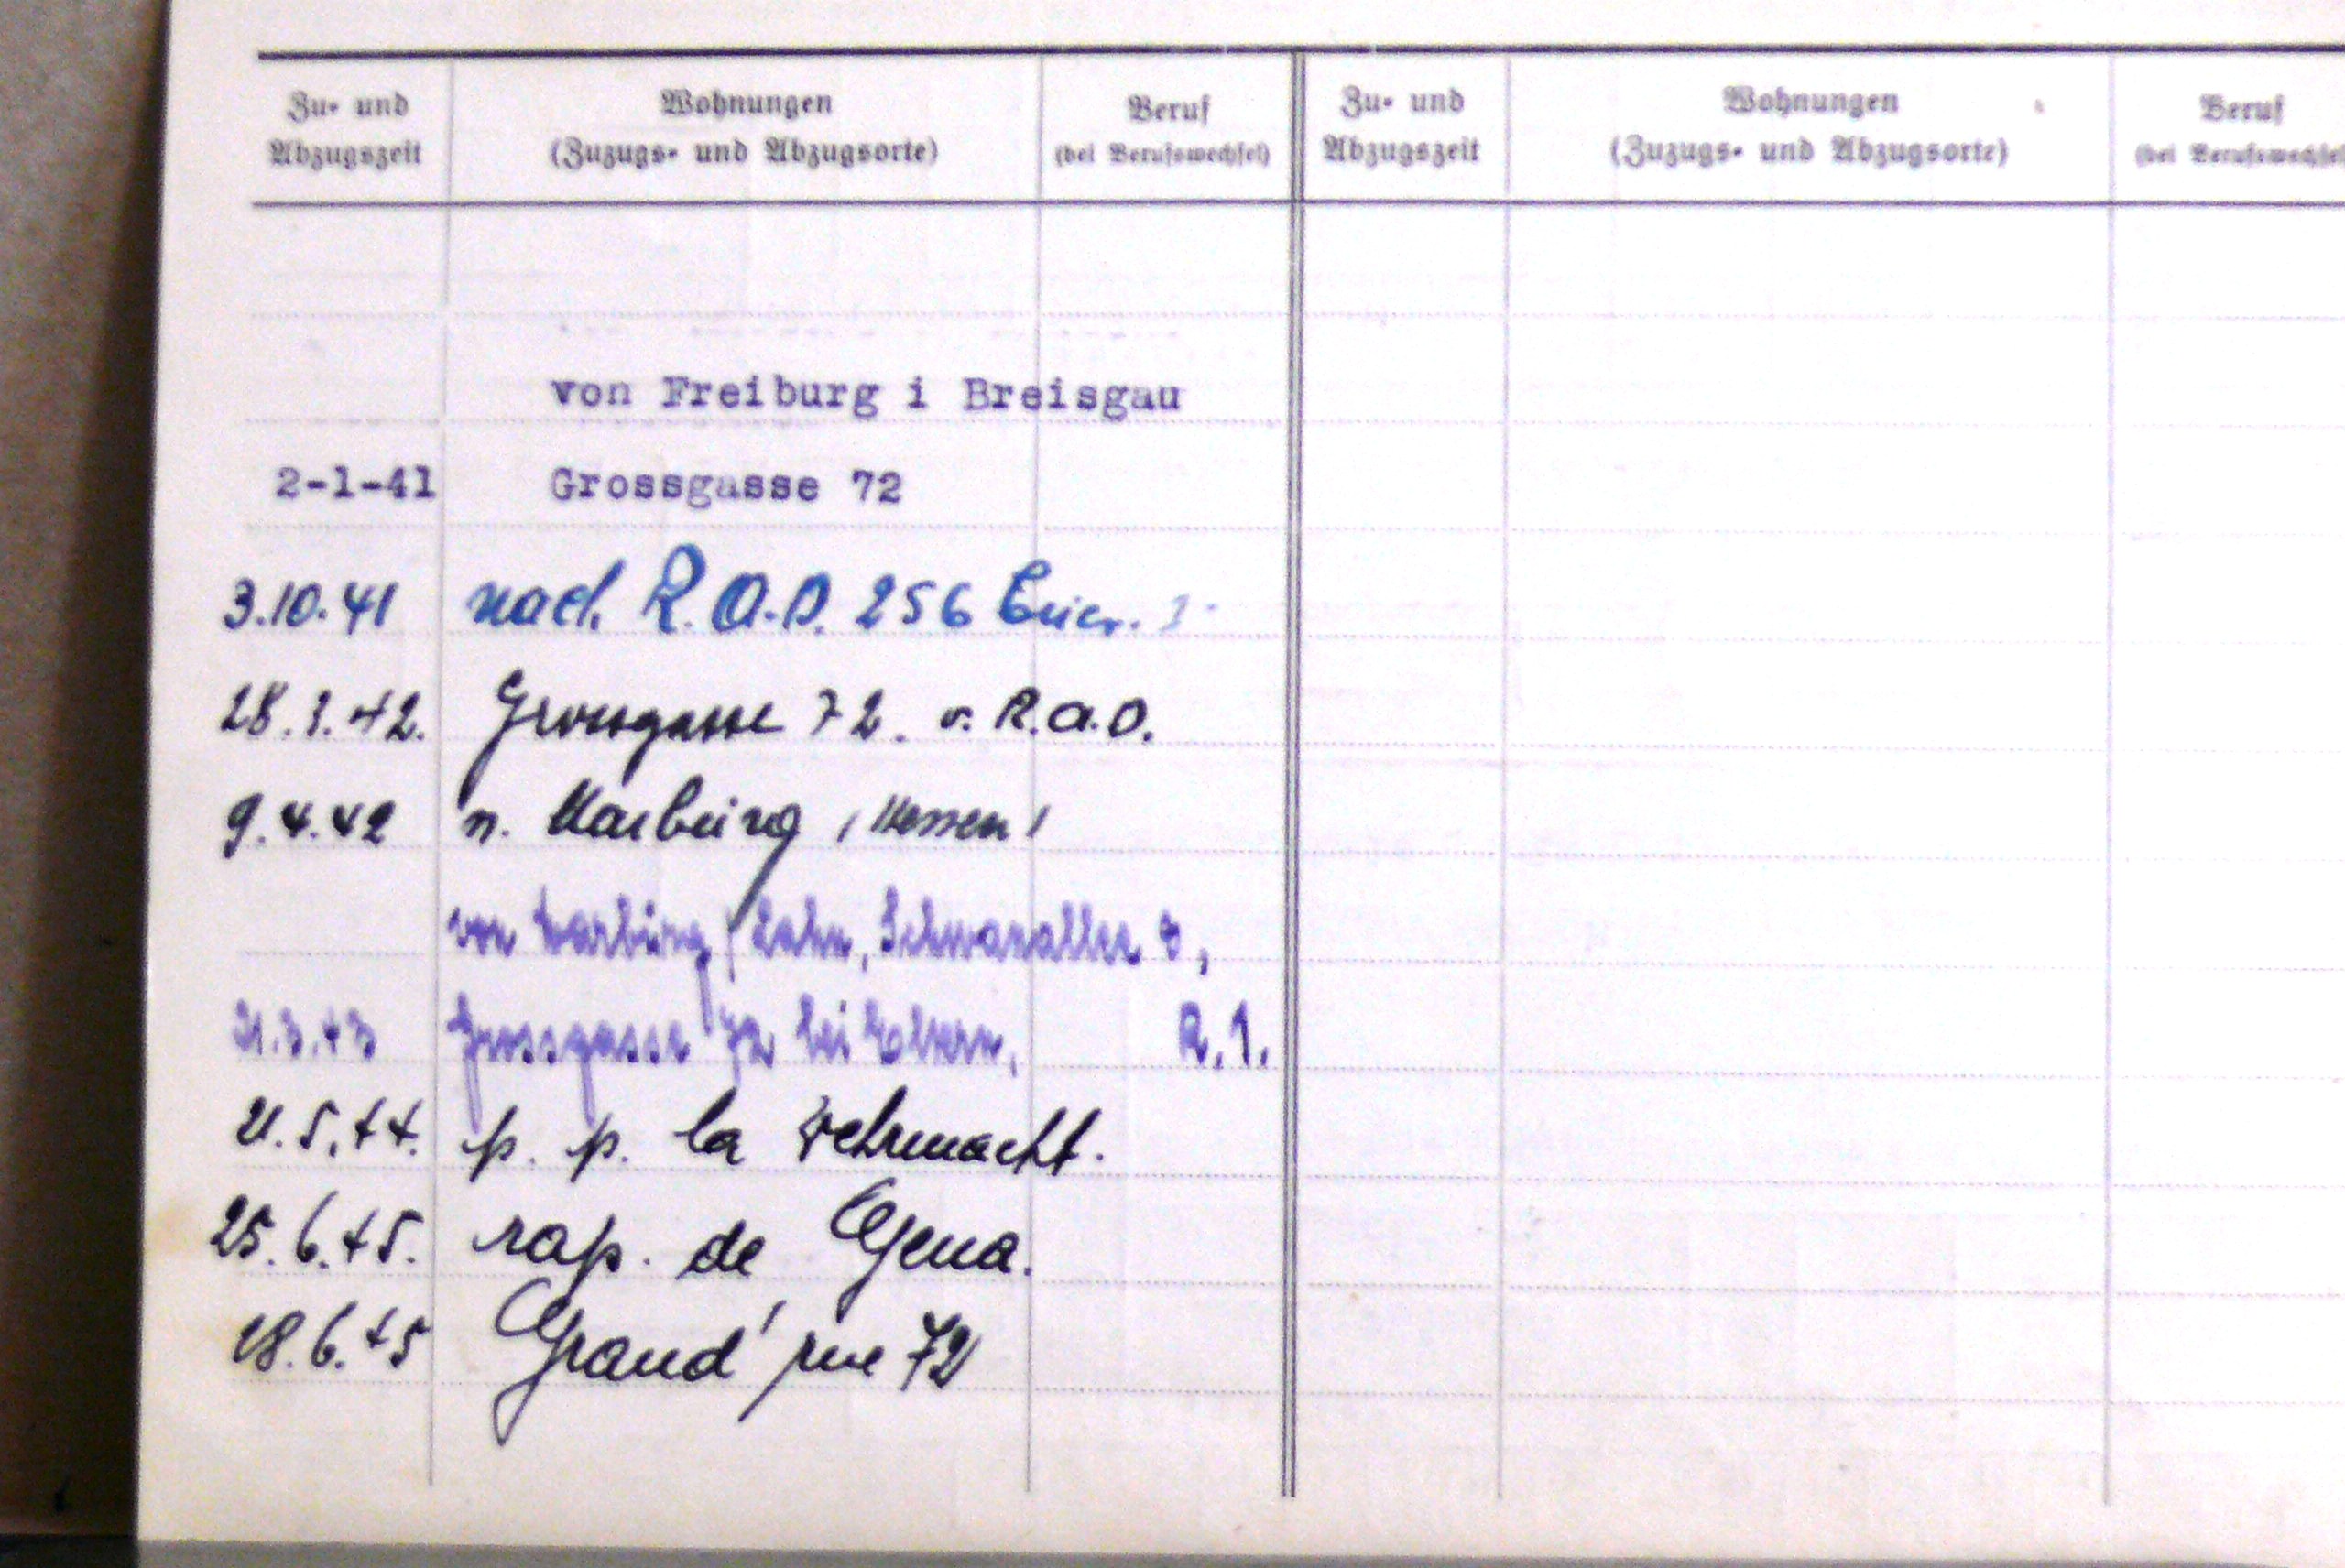 Zu- und
Abzugszeit
Wohnungen
(Zuzugs- und Abzugsorte)
Beruf
(bei Berufswechsel)
Zu- und
Abzugszeit
Wohnungen
(Zuzugs- und Abzugsorte)
Beruf
(bei Berufswechsel
von Freiburg i Breisgau
2-1-41 Grossgasse 72
3.10.41 nach R.A.D. 256
28.3.42. Grossgasse 72. v. R.A.D.
9.4.42 n. Marburg (Hessen)
von Marburg/Lahn, Schwanallee
Grossgasse 72 bei Eltern, R.1.
21.5.44. p. p. la Wehrmacht.
25.6.45. rap. de
28.6.45 Grand'rue 72